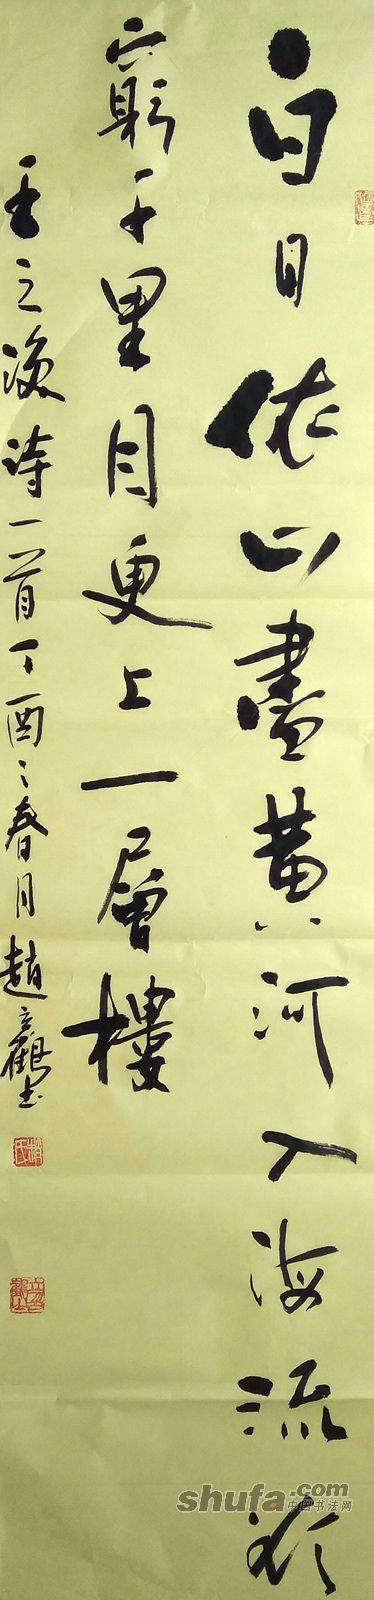 白日依山盡黄河入海流欲
窮千里目更上一層樓
王之渙詩一首丁酉之春月趙立书
shufa.com
中国书法网